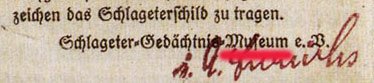 zeichen das Schlageterschild zu tragen.
Schlageter-Gedächtnis-Museum e. V.